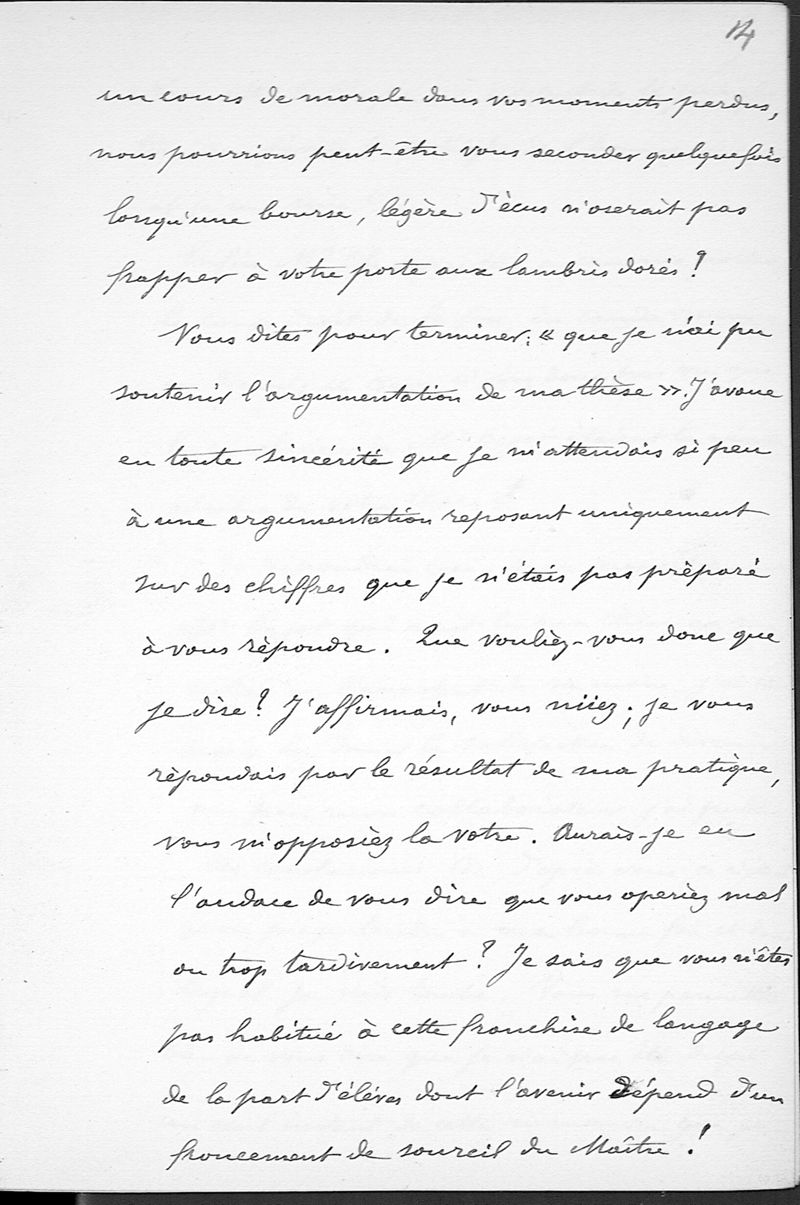 14
un cours de morale dans vos moments perdus,
nous pourrions peut-être vous seconder quelquefois
lorsqu'une bourse, légère d'écus n'oserait pas
frapper à votre porte aux lambris dorés !
Vous dites pour terminer : « que je n'ai pu
soutenir l'argumentation de ma thèse ». J'avoue
en toute sincérité que je m'attendais si peu
à une argumentation reposant uniquement
sur des chiffres que je n'étais pas préparé
à vous répondre. Que vouliez-vous donc que
je dise ? J'affirmais, vous niiez ; je vous
répondais par le résultat de ma pratique,
vous m'opposiez la votre. Aurais-je eu
l'audace de vous dire que vous operiez mal
ou trop tardivement ? Je sais que vous n'êtes
pas habitué à cette franchise de langage
de la part d'élèves dont l'avenir dépend d'un
froncement de sourcil du Maître !